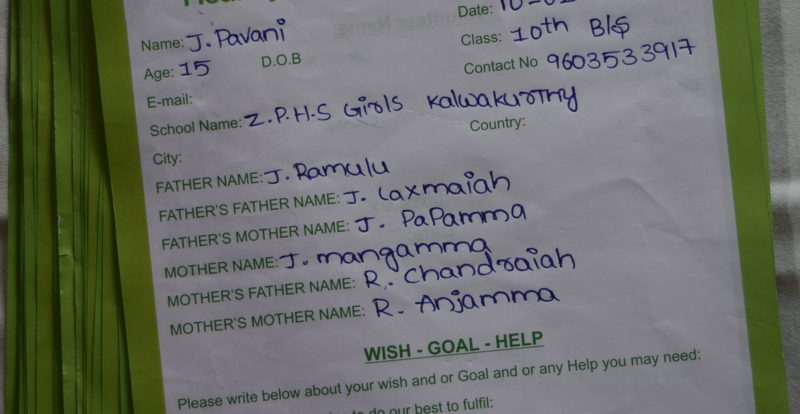 Name: J. Pavani
Date: 10-
Age: 15 D.O.B
Class: 10th B/S
E-mail:
Contact No 9603533917
School Name: Z.P.H.S Girls Kalwakurthy
City:
Country:
FATHER NAME: J. Ramulu
FATHER'S FATHER NAME: J. Laxmaiah
FATHER'S MOTHER NAME: J. PaPamma
MOTHER NAME: J. mangamma
MOTHER'S FATHER NAME: R. Chandraiah
MOTHER'S MOTHER NAME: R. Anjamma
WISH - GOAL - HELP
Please write below about your wish and or Goal and or any Help you may need:
do our best to fulfil: